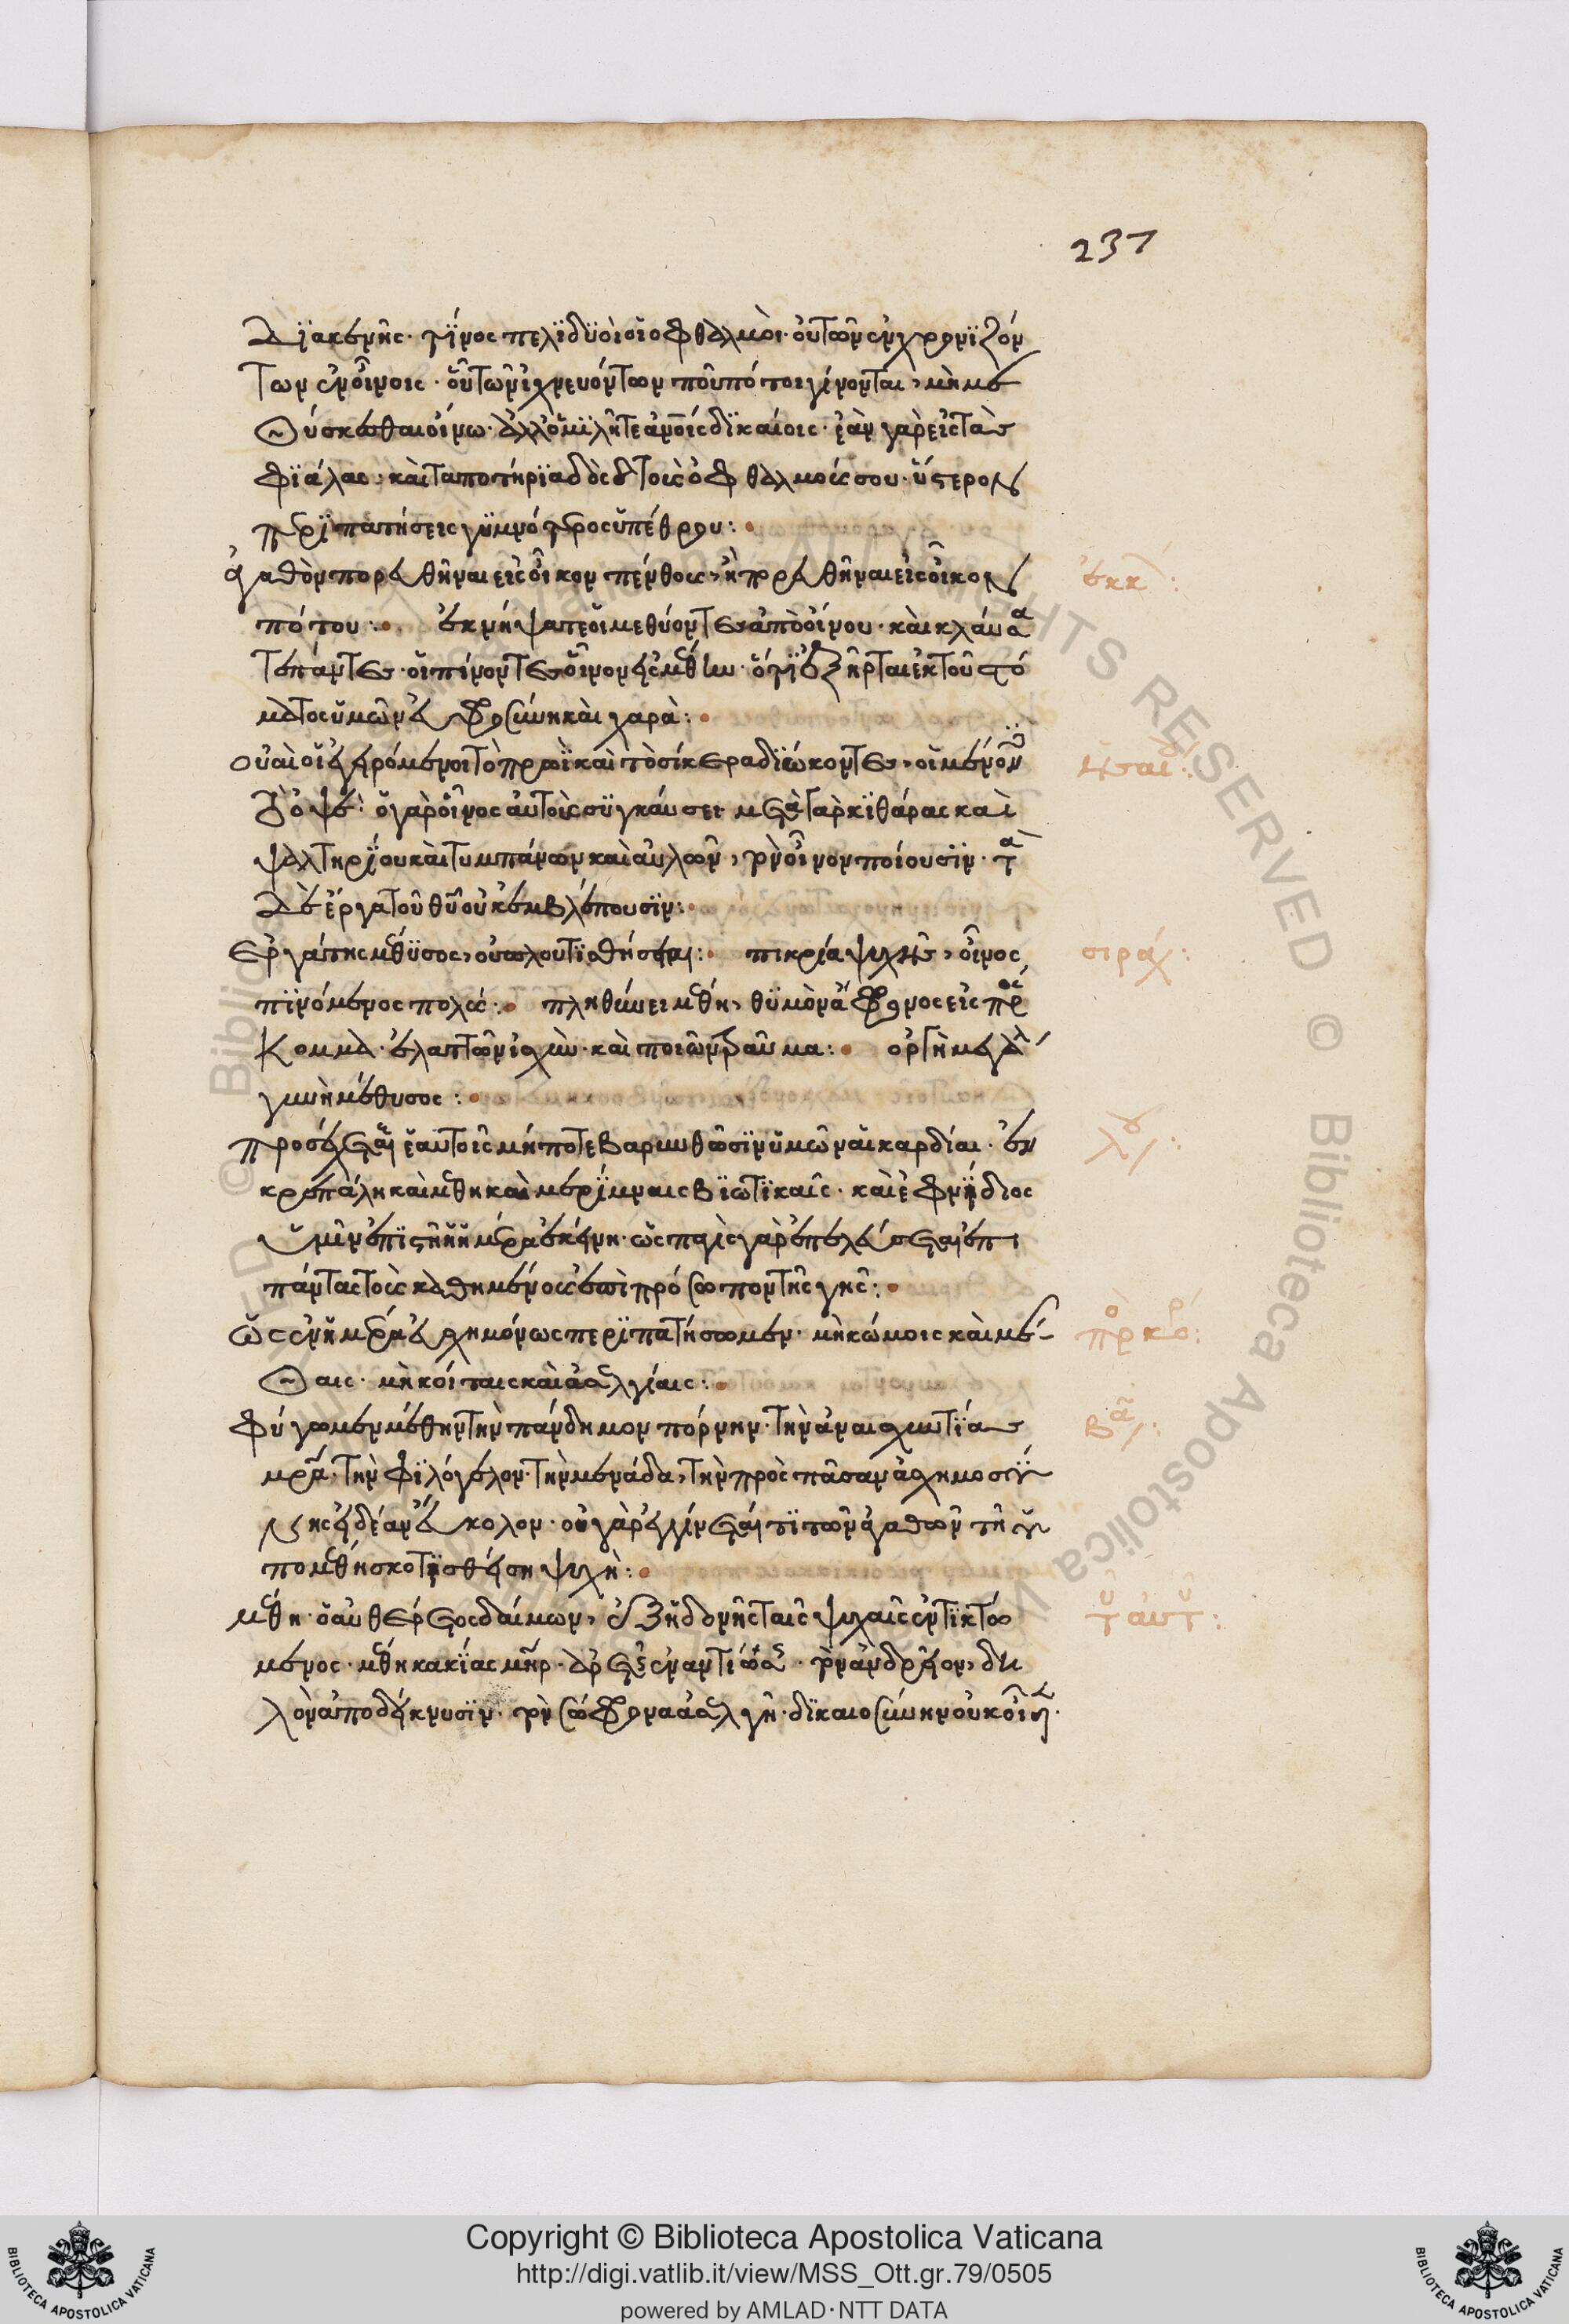 237
διακενῆς· τίνος πελιδνοὶ οἱ ὀφθαλμοὶ· οὐ τῶν ἐγχρονιζόν
των ἐν οἴνοις· οὐ τῶν ἰχνευόντων ποῦ πότοι γίνονται, μὴ με
θύσκεσθαι οἴνω· ἀλλ' ὁμιλῆτε ἀνοις δικαίοις· ἐὰν γὰρ εἰς τὰς
φιάλας· καὶ τα ποτήρια δὸς τοὺς ὀφθαλμούς σου· ὕστερον
περιπατήσεις γυμνότερος ὑπέρου:
ἀγαθὸν πορευθῆναι εἰς οἶκον πένθους, ἢ πορευθῆναι εἰς οἶκον
εκκ:
πότου: ἐκνήψατε οἱ μεθύοντες ἀπὸ οἴνου· καὶ κλαύσα
τε πάντες· οἱ πίνοντες οἶνον εἰς μέθην· ὅτι ἐξῆρται ἐκ τοῦ στό
ματος ὑμῶν εὐφροσύνη καὶ χαρὰ:
οὐαὶ οἱ ἐγειρόμενοι τὸ πρωῒ καὶ τὸ σίκερα διώκοντες, οἱ μένον
ησαΐ:
τες τὸ ὀψέ: ὁ γὰρ οἶνος αὐτοὺς συγκαύσει μετὰ γὰρ κιθάρας καὶ
ψαλτηρίου καὶ τυμπάνων καὶ αὐλῶν, τὸν οἶνον πίουσιν· τὰ
δὲ ἔργα τοῦ θυ οὐκ ἐμβλέπουσιν:
εργάτης μέθυσος, οὐ πλουτισθήσεται: πικρία ψυχῆς, οἶνος
σιράχ:
πινόμενος πολύς: πληθύνει μέθη, θυμὸν ἄφρονος εἰς πρόσ
κομμα· ἐλαττῶν ἰσχὺν· καὶ ποιῶν τραῦμα: ὀργὴ μεγάλη
γυνὴ μέθυσος:
προσέχετε ἑαυτοῖς μήποτε βαρυνθῶσιν ὑμῶν αἱ καρδίαι· ἐν
λου:
κρεπάλη καὶ μέθη καὶ μερίμναις βιωτικαῖς· καὶ ἐφνίδιος
ὑμῖν ἐπιστῆ ἡ ἡμέρα ἐκείνη· ὡς παγὶς γὰρ ἐπελεύσεται ἐπὶ
πάντας τοὺς καθημένους ἐπὶ πρόσωπον τῆς γῆς:
ὡς ἐν ἡμέρα εὐσχημόνως περιπατήσωμεν· μὴ κώμοις καὶ μέ
θαις· μὴ κοίταις καὶ ἀσελγείαις:
φύγωμεν μέθην τὴν πάνδημον πόρνην· τὴν ἀναισχυντίας
βα:
μρα· τὴν φιλόγελον· τὴν μενάδα, τὴν πρὸς πᾶσαν ἀσχημοσύ
νης ἰδέαν εὔκολον· οὐ γὰρ ἐγγίνεταί τι τῶν ἀγαθῶν τῆ ὑ
πὸ μέθη σκοτισθείση ψυχὴ:
μέθη· ὁ αὐθέρετος δαίμων, ἐξ ἡδονῆς ταῖς ψυχαῖς ἐντικτό
τ αυτ:
μενος· μέθη κακίας μηρ· ἀρετῆς ἐναντίωσις· τὸν ἀνδρεῖον, δει
λὸν ἀποδείκνυσιν· τὸν σώφρονα ἀσελγῆ· δικαιοσύνην οὐκ οἶδεν·
Copyright © Biblioteca Apostolica Vaticana
http://digi.vatlib.it/view/MSS_Ott.gr.79/0505
powered by AMLAD·NTT DATA